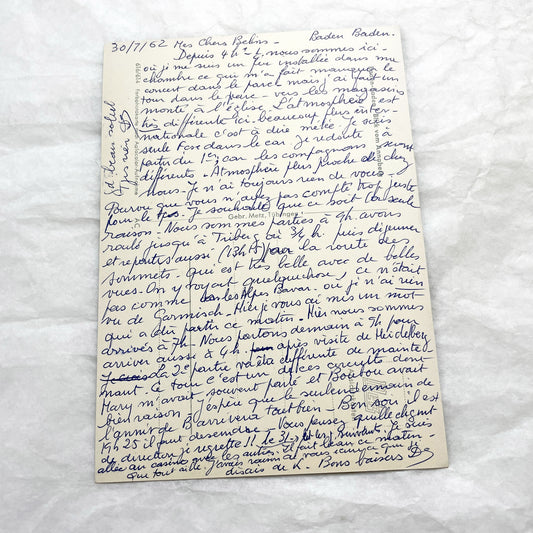 30/7/62 Mes Chers Belins - Baden Baden.
Depuis 4h ½ nous sommes ici -
où je me suis un peu installée dans ma
chambre ce qui m'a fait manquer le
concert dans le parc mais j'ai fait un
tour dans le parc - vers les magasins
monté à l'église. L'atmosphère est
très différente ici. beaucoup plus inter-
nationale c'est à dire mêlée. Je suis
seule dans le car. Je redoute à
partir du 1er, car les compagnons seront
différents. Atmosphère plus proche de chez
nous. Je n'ai toujours rien de vous.
Pourvu que vous n'ayez pas compté trop juste
pour le tps. Je souhaite que ce soit la seule
raison - Nous sommes parties à 9h. avons
roulé jusqu'à Triberg où 3/4 h. puis déjeuner
et repartis aussi (13h½) par la route des
sommets. qui est très belle avec de belles
vues. On y voyait quelque chose, ce n'était
pas comme les Alpes Bavar. où je n'ai rien
vu de Garmisch. Hier je vous ai mis un mot
qui a dû partir ce matin. Hier nous sommes
arrivés à 7h. Nous partons demain à 9h pour
arriver aussi à 4h. après visite de Heidelberg
la 2e partie va être différente de mainte
nant. Ce tour c'est un de ces circuits dont
Mary m'avait souvent parlé et Boubou avait
bien raison. J'espère que le seul demain de
l'année B arrivera tout bien - Bon sou il est
19h25 il faut descendre. Vous pensez quelle
de directeur je regrette !! le 31. et les jours suivants. Je suis
allée au casino avec les autres. Il fait beau ce matin -
que tout aille. J'avais raison de
disais de K. Bons baisers
Gebr. Metz, Tübingen